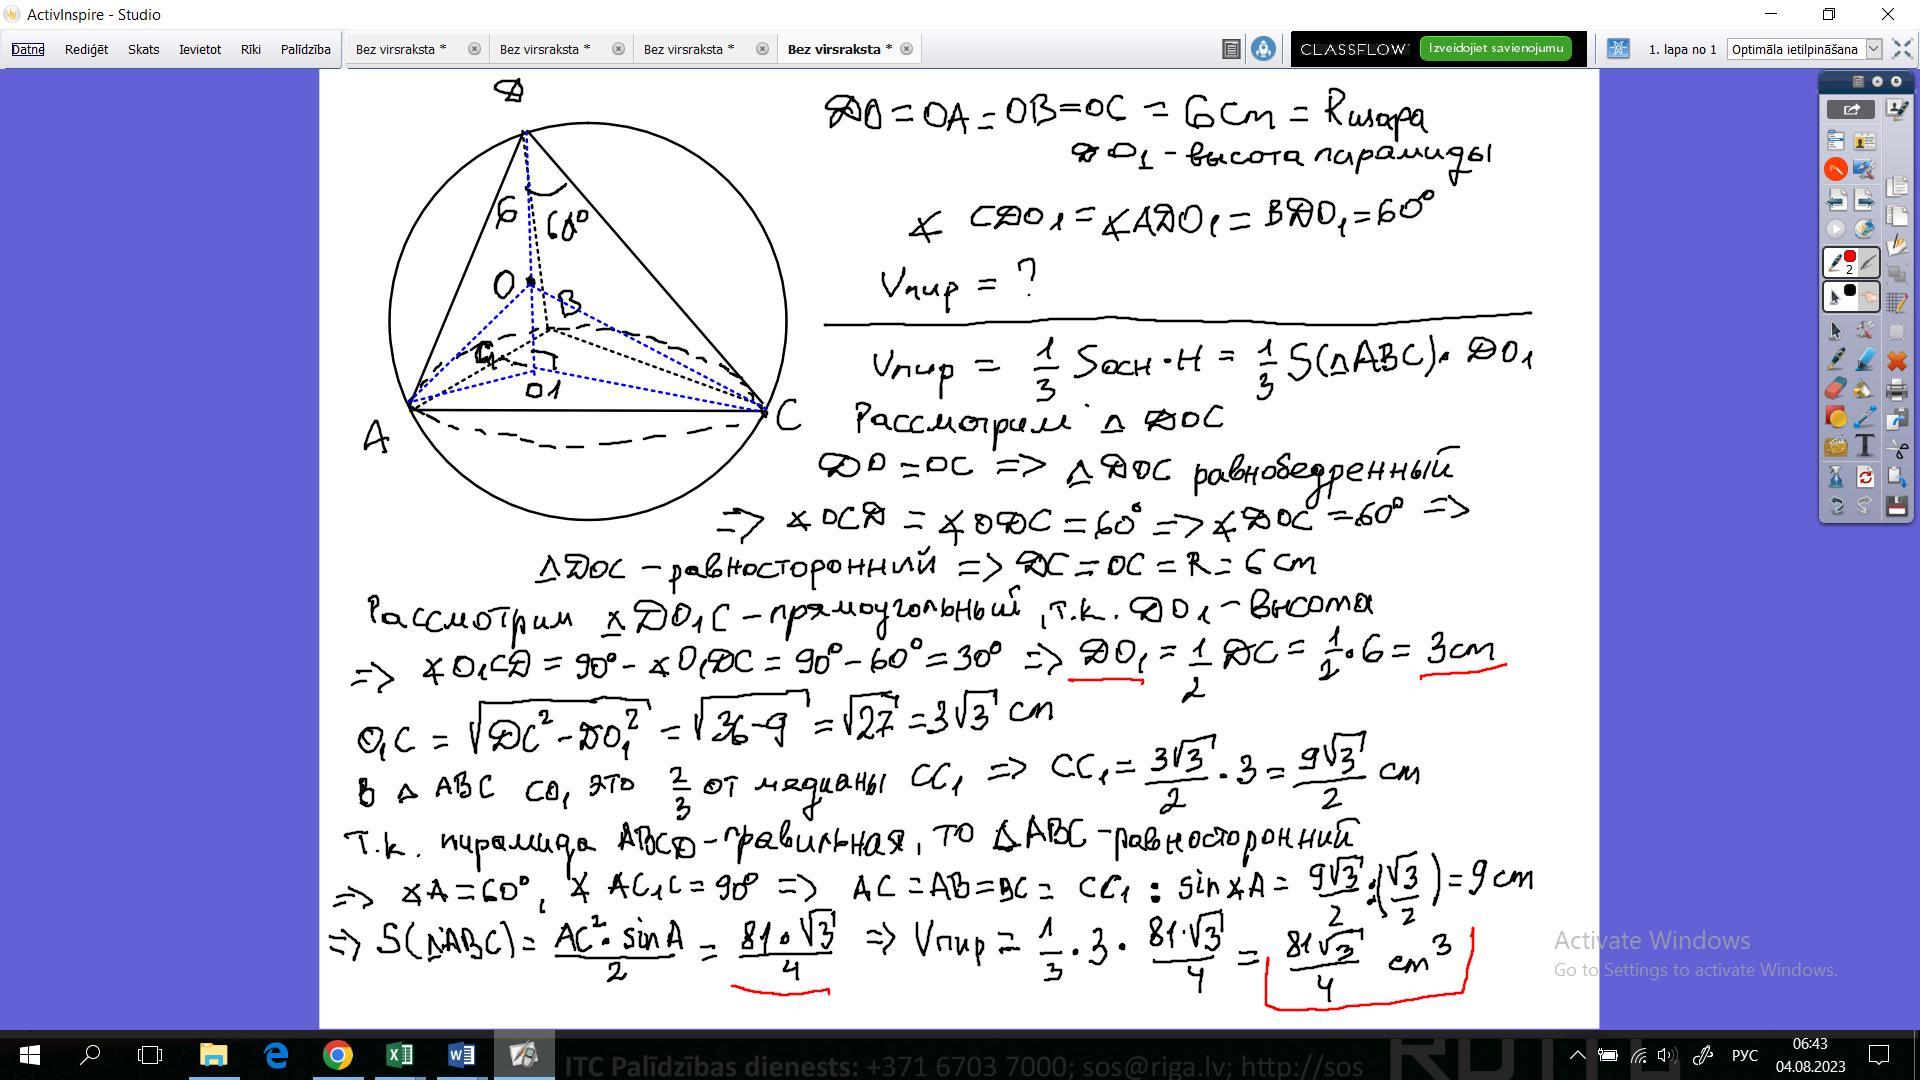 ActivInspire - Studio
Datne Rediģēt Skats Ievietot Rīki Palīdzība Bez virsraksta * Bez virsraksta * Bez virsraksta * Bez virsraksta * CLASSFLOW Izveidojiet savienojumu 1. lapa no 1 Optimāla ietilpināšana
D
6
60°
O
B
C1
O1
A
C
DO = OA = OB = OC = 6 cm = Rшара
DO1 - высота пирамиды
∢ CDO1 = ∢ADO1 = BDO1 = 60°
Vпир = ?
Vпир = 1/3 Sосн · H = 1/3 S(△ABC) · DO1
Рассмотрим △ DOC
DO = OC => △ DOC равнобедренный
=> ∢ OCD = ∢ ODC = 60° => ∢ DOC = 60° =>
△DOC - равносторонний => DC = OC = R = 6 cm
Рассмотрим △DO1C - прямоугольный, т.к. DO1 - высота
=> ∢ O1CD = 90° - ∢ O1DC = 90° - 60° = 30° => DO1 = 1/2 DC = 1/2 · 6 = 3 cm
O1C = √(DC² - DO1²) = √(36-9) = √27 = 3√3 cm
В △ ABC CO1 это 2/3 от медианы CC1 => CC1 = 3√3/2 · 3 = 9√3/2 cm
Т.к. пирамида ABCD - правильная, то △ABC - равносторонний
=> ∢A = 60°, ∢ AC1C = 90° => AC = AB = BC = CC1 : sin∢A = 9√3/2 : (√3/2) = 9 cm
=> S(△ABC) = AC² · sinA/2 = 81·√3/4 => Vпир = 1/3 · 3 · 81·√3/4 = 81√3/4 cm³
2
Activate Windows
Go to Settings to activate Windows.
ITC Palīdzības dienests: +371 6703 7000; sos@riga.lv; http://sos
РУС
06:43
04.08.2023